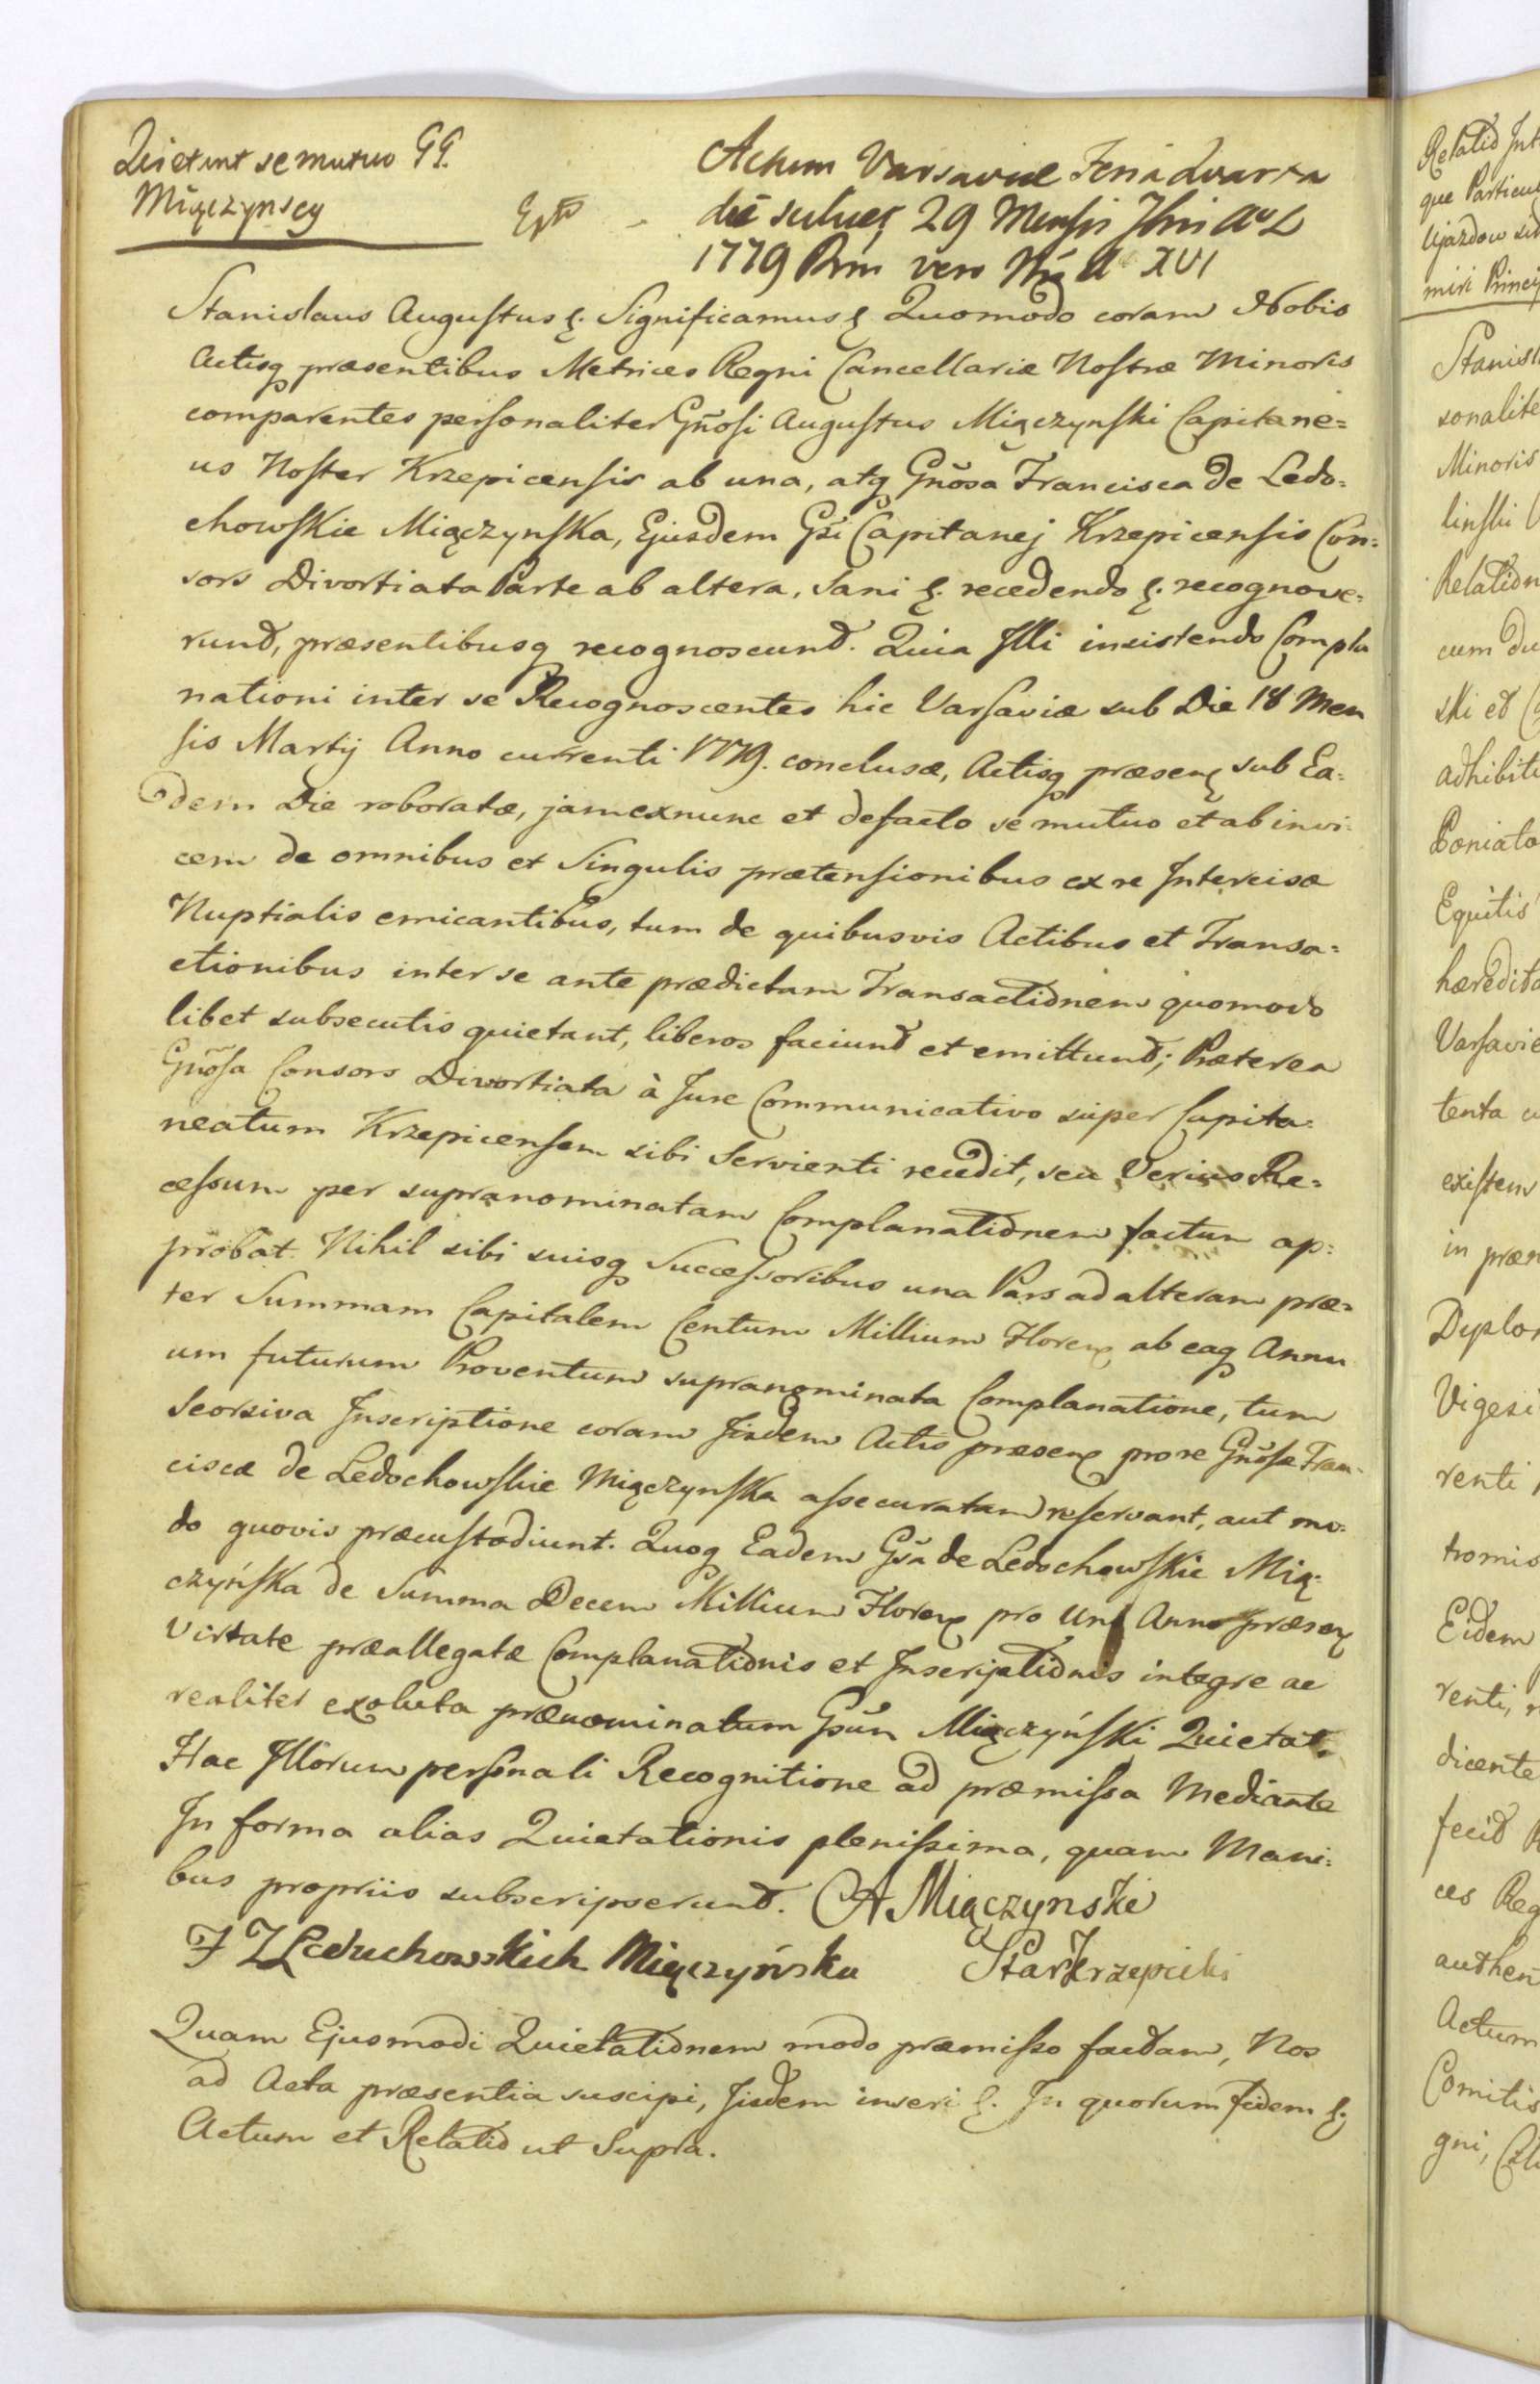 Quietant se mutuo GG.
Miączynscy
Extr
Actum Varsaviæ Feria Quarta
die 29 Mensis A D
1779 Rni vero Nri A XVI
Stanislaus Augustus &. Significamus & Quomodo coram Nobis
Actisq præsentibus Metrices Regni Cancellariæ Nostræ Minoris
comparentes personaliter Gnosi Augustus Miączynski Capitane=
us Noster Krzepicensis ab una, atq Gnosa Francisca de Ledo=
chowskie Miączynska, Ejusdem Gsi Capitanej Krzepicensis Con=
sors Divortiata Parte ab altera, Sani &. recedendo &. recognove=
runt, præsentibusq recognoscunt. Quia Illi insistendo Compla
nationi inter se Recognoscentes hic Varsaviæ sub Die 18 Men
sis Martij Anno currenti 1779. conclusæ, Actisq præsen sub Ea=
dem Die roboratæ, jamexnunc et defacto se mutuo et ab invi=
cem de omnibus et Singulis prætensionibus ex re Intercisæ
Nuptialis emicantibus, tum de quibusvis Actibus et Transa=
ctionibus inter se ante prædictam Transactionem quomodo
libet subsecutis quietant, liberos faciunt et emittunt; Præterea
Gnosa Consors Divortiata à Jure Communicativo super Capita=
neatum Krzepicensem sibi Servienti recedit, seu Verius Re=
cessum per supranominatam Complanationem factum ap=
probat. Nihil sibi suisq Successoribus una Pars ad alteram præ=
ter Summam Capitalem Centum Millium Floren ab eaq Annu
um futurum Proventum supranominata Complanatione, tum
Seorsiva Inscriptione coram Iisdem Actis præsen pro re Gnosæ Fran=
ciscæ de Ledochowskie Miączynska assecuratam reservant, aut mo=
do quovis præcustodiunt. Quoq Eadem Gsa de Ledochowskie Mią=
czyńska de Summa Decem Millium Floren pro Uno Anno præsen
Virtute præallegatæ Complanationis et Inscriptionis integre ac
realiter exoluta prænominatum Gsum Miączyński Quietat.
Hac Illorum personali Recognitione ad præmissa Mediante
In forma alias Quietationis plenissima, quam Mani=
bus propriis subscripserunt. A Miączynski
F Z Leduchowskich Miączyńska Star Krzepicki
Quam Ejusmodi Quietationem modo præmisso factam, Nos
ad Acta præsentia suscipi, Iisdem inseri &. In quorum fidem &
Actum et Relatio ut Supra.